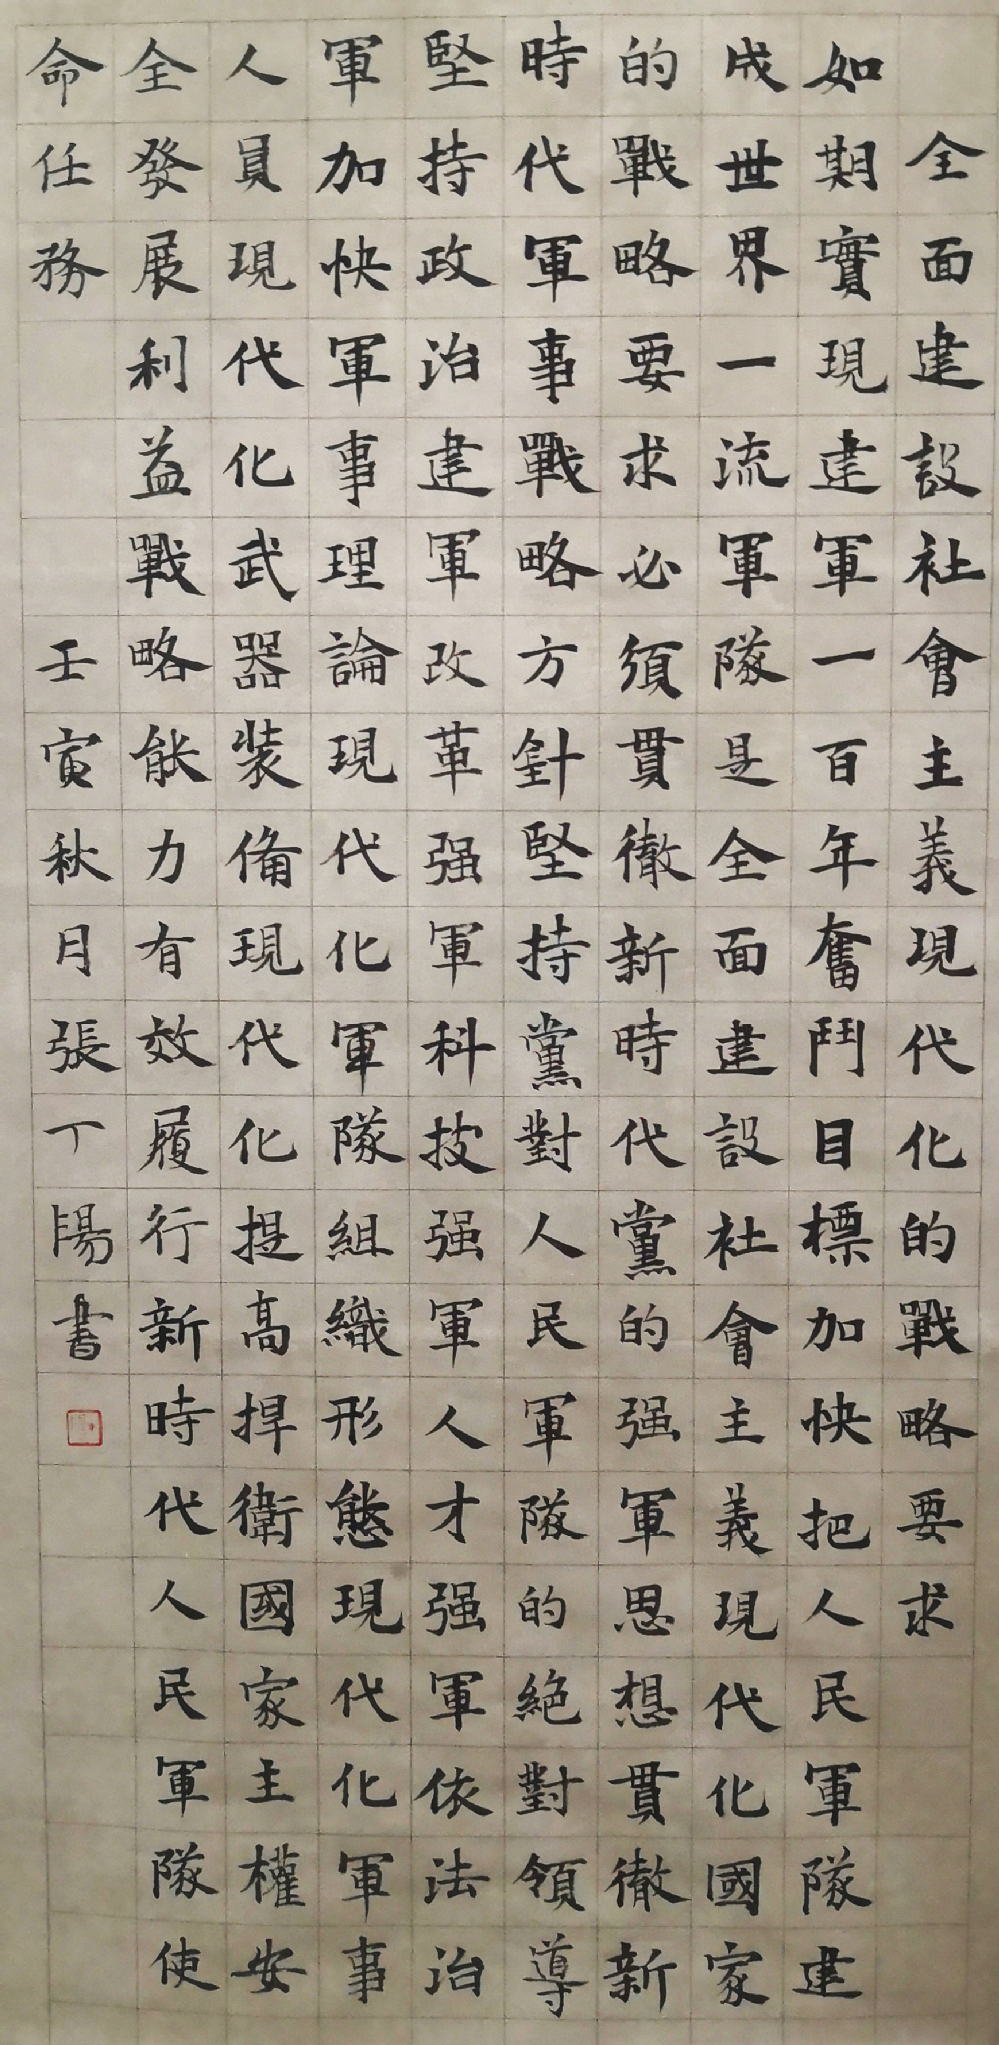 全面建設社會主義現代化的戰略要求
如期實現建軍一百年奮鬥目標加快把人民軍隊建
成世界一流軍隊是全面建設社會主義現代化國家
的戰略要求必須貫徹新時代黨的强軍思想貫徹新
時代軍事戰略方針堅持黨對人民軍隊的絕對領導
堅持政治建軍改革强軍科技强軍人才强軍依法治
軍加快軍事理論現代化軍隊組織形態現代化軍事
人員現代化武器裝備現代化提高捍衛國家主權安
全發展利益戰略能力有效履行新時代人民軍隊使
命任務
壬寅秋月張丁陽書